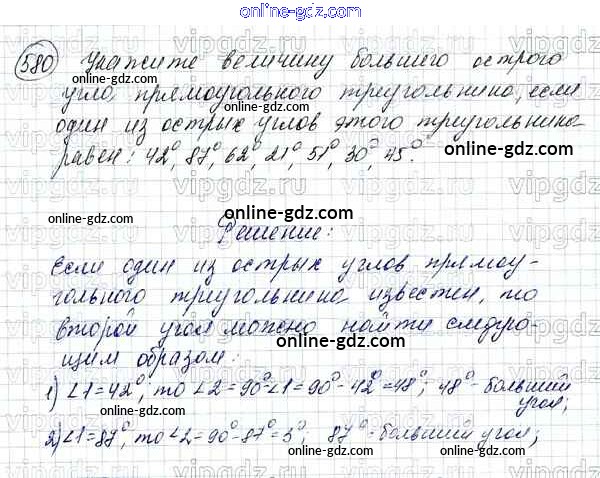 online-gdz.com
580 Укажите величину большего острого
online-gdz.com
угла прямоугольного треугольника, если
один из острых углов этого треугольника
равен: 42°, 87°, 62°, 21°, 51°, 30°, 45°.
online-gdz.com
online-gdz.com
online-gdz.com
Решение:
online-gdz.com
Если один из острых углов прямоу-
гольного треугольника известен, то
второй угол можно найти следую-
щим образом:
online-gdz.com
1) ∠1=42°, то ∠2=90°-∠1=90°-42°=48°; 48°-больший
угол;
online-gdz.com
2) ∠1=87°, то ∠2=90°-87°=3°; 87°-больший угол;
online-gdz.com